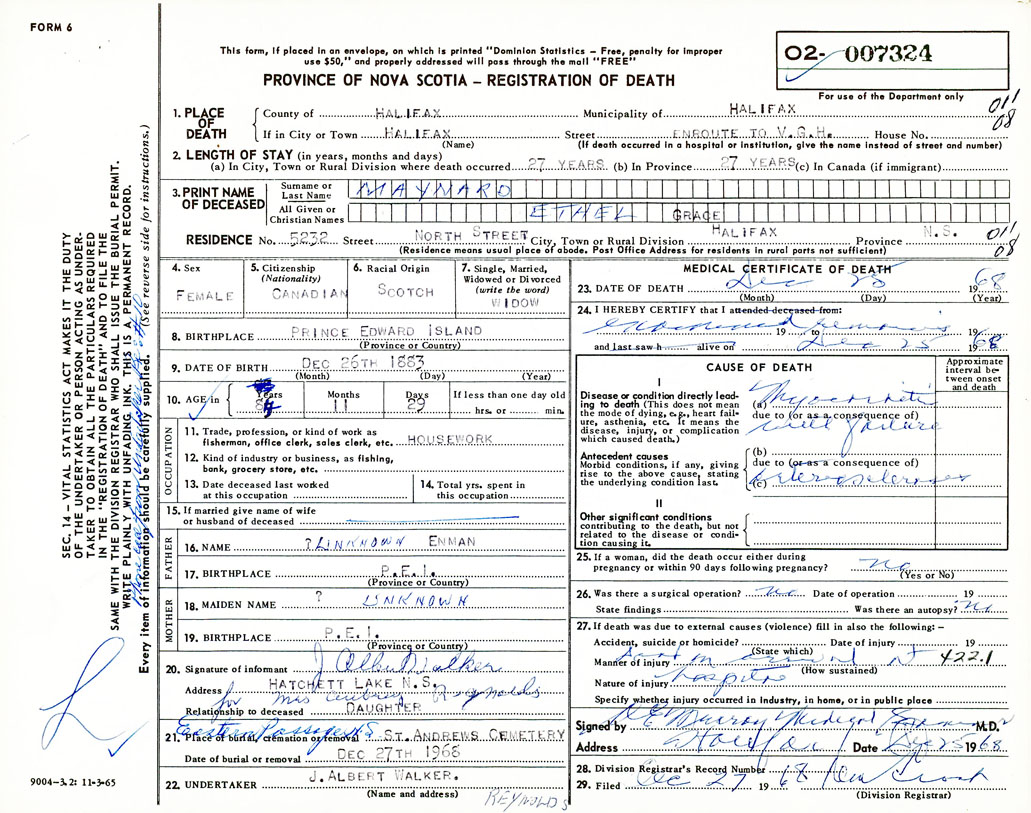 FORM 6
This form, if placed in an envelope, on which is printed "Dominion Statistics – Free, penalty for improper
use $50," and properly addressed will pass through the mail "FREE"
PROVINCE OF NOVA SCOTIA – REGISTRATION OF DEATH
O2- 007324
For use of the Department only
011
08
1. PLACE OF DEATH
County of HALIFAX Municipality of HALIFAX
If in City or Town HALIFAX Street ENROUTE TO V.G.H. House No.
(Name) (If death occurred in a hospital or institution, give the name instead of street and number)
2. LENGTH OF STAY (in years, months and days)
(a) In City, Town or Rural Division where death occurred 27 YEARS (b) In Province 27 YEARS (c) In Canada (if immigrant)
3. PRINT NAME OF DECEASED
Surname or Last Name MAYNARD
All Given or Christian Names ETHEL GRACE
RESIDENCE No. 5232 Street NORTH STREET City, Town or Rural Division HALIFAX Province N.S.
011
08
(Residence means usual place of abode. Post Office Address for residents in rural parts not sufficient)
4. Sex
FEMALE
5. Citizenship
(Nationality)
CANADIAN
6. Racial Origin
SCOTCH
7. Single, Married,
Widowed or Divorced
(write the word)
WIDOW
8. BIRTHPLACE PRINCE EDWARD ISLAND
(Province or Country)
9. DATE OF BIRTH DEC 26TH 1883
(Month) (Day) (Year)
10. AGE in Years 84 Months 11 Days 29 If less than one day old
hrs. or min.
OCCUPATION
11. Trade, profession, or kind of work as
fisherman, office clerk, sales clerk, etc. HOUSEWORK
12. Kind of industry or business, as fishing,
bank, grocery store, etc.
13. Date deceased last worked
at this occupation
14. Total yrs. spent in
this occupation
15. If married give name of wife
or husband of deceased
FATHER
16. NAME ?UNKNOWN ENMAN
17. BIRTHPLACE P.E.I.
(Province or Country)
MOTHER
18. MAIDEN NAME ? UNKNOWN
19. BIRTHPLACE P.E.I.
(Province or Country)
20. Signature of informant J Albert Walker
Address HATCHETT LAKE N.S.
for Mrs Aubrey Reynolds
Relationship to deceased DAUGHTER
Eastern Passage N.S.
21. Place of burial, cremation or removal ST. ANDREWS CEMETERY
Date of burial or removal DEC 27TH 1968
22. UNDERTAKER J. ALBERT WALKER.
(Name and address)
REYNOLDS
MEDICAL CERTIFICATE OF DEATH
23. DATE OF DEATH Dec 25 1968
(Month) (Day) (Year)
24. I HEREBY CERTIFY that I attended deceased from:
examined remains 19 to
and last saw h alive on Dec 25 1968
CAUSE OF DEATH
Approximate
interval be-
tween onset
and death
I
Disease or condition directly lead-
ing to death (This does not mean
the mode of dying, e.g., heart fail-
ure, asthenia, etc. It means the
disease, injury, or complication
which caused death.)
(a) Myocarditis
due to (or as a consequence of)
with failure
Antecedent causes
Morbid conditions, if any, giving
rise to the above cause, stating
the underlying condition last.
(b)
due to (or as a consequence of)
(c) arteriosclerosis
II
Other significant conditions
contributing to the death, but not
related to the disease or condi-
tion causing it.
25. If a woman, did the death occur either during
pregnancy or within 90 days following pregnancy? no
(Yes or No)
26. Was there a surgical operation? no Date of operation 19
State findings Was there an autopsy? no
27. If death was due to external causes (violence) fill in also the following: –
Accident, suicide or homicide? Date of injury 19
(State which)
Manner of injury dead on arrival at 422.1
(How sustained)
Nature of injury hospital
Specify whether injury occurred in industry, in home, or in public place
Signed by Murray Medical Examiner M.D.
Address Halifax Date Dec 25 1968
28. Division Registrar's Record Number
29. Filed Dec 27 1968
(Division Registrar)
SEC. 14 – VITAL STATISTICS ACT MAKES IT THE DUTY
OF THE UNDERTAKER OR PERSON ACTING AS UNDER-
TAKER TO OBTAIN ALL THE PARTICULARS REQUIRED
IN THE "REGISTRATION OF DEATH" AND TO FILE THE
SAME WITH THE DIVISION REGISTRAR WHO SHALL ISSUE THE BURIAL PERMIT.
WRITE PLAINLY WITH UNFADING INK. THIS IS A PERMANENT RECORD.
Every item of information should be carefully supplied. (See reverse side for instructions.)
9004–3.2: 11-3-65